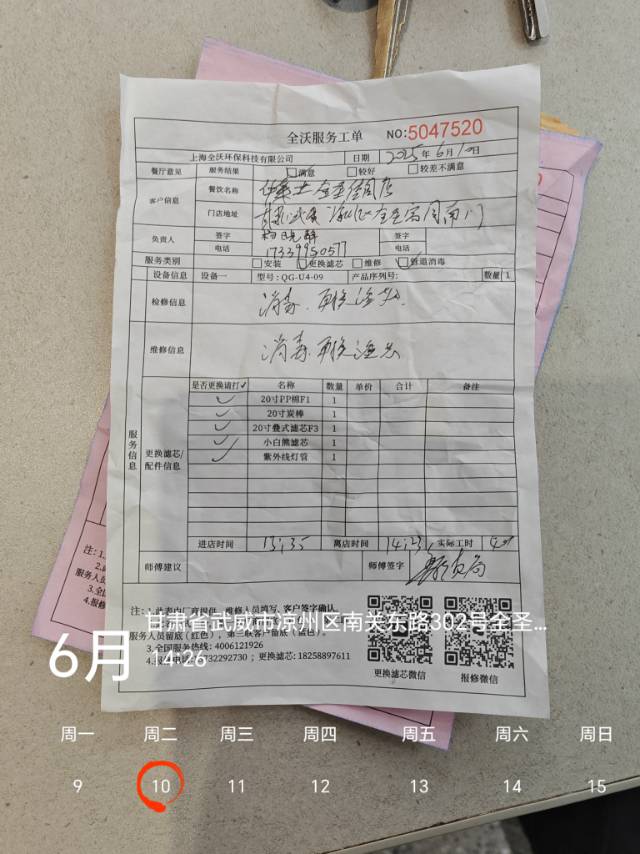 全沃服务工单 NO:5047520
上海全沃环保科技有限公司 日期 2025年6月10日
餐厅意见 服务结果 满意 较好 较差不满意
客户信息 餐饮名称
门店地址
负责人 签字 签字
电话 17339950577 电话
服务类别 安装 更换滤芯 维修 管道消毒
设备信息 设备一 型号:QG-U4-09 产品序列号: 数量 1
检修信息 消毒 更换滤芯
维修信息 消毒 更换滤芯
服务信息 更换滤芯/配件信息
是否更换请打✓ 名称 数量 单价 合计 备注
✓ 20寸PP棉F1 1
✓ 20寸炭棒 1
✓ 20寸叠式滤芯F3 1
✓ 小白熊滤芯 1
✓ 紫外线灯管 1
进店时间 13:35 离店时间 实际工时
师傅建议 师傅签字
注:1.此表由厂商提供,维修人员填写,客户签字确认
服务人员留底(红色),第三联客户留底(蓝色)。
3.全国服务热线:4006121926
更换滤芯:18258897611
更换滤芯微信 报修微信
甘肃省武威市凉州区南关东路302号全圣...
6月 14:26
周一 周二 周三 周四 周五 周六 周日
9 10 11 12 13 14 15